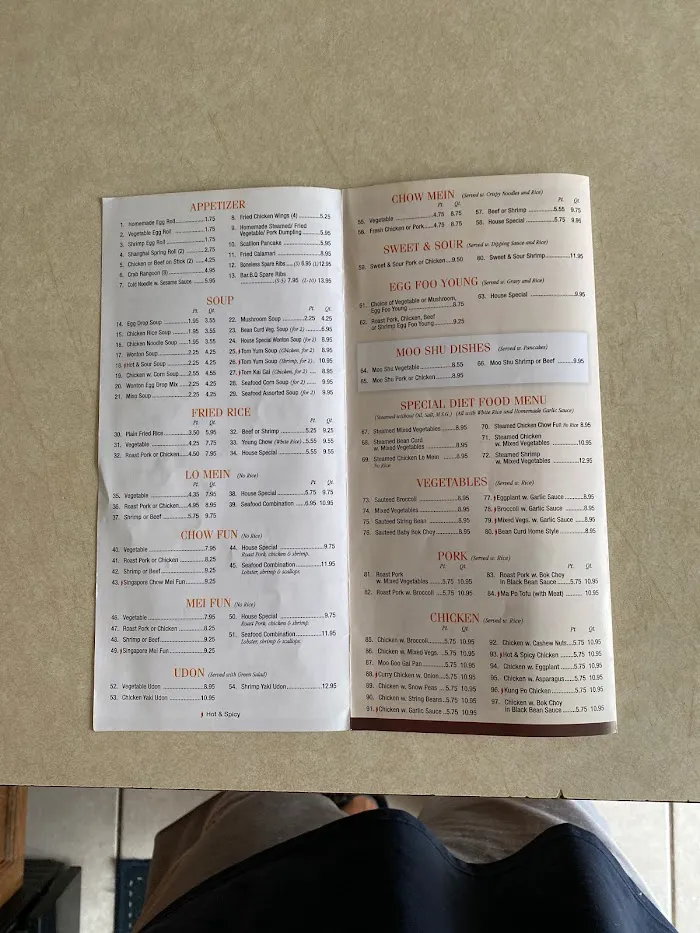 APPETIZER
1. Homemade Egg Roll 1.75
2. Vegetable Egg Roll 1.75
3. Shrimp Egg Roll 1.75
4. Shanghai Spring Roll (2) 2.75
5. Chicken or Beef on Stick (2) 4.25
6. Crab Rangoon (8) 4.95
7. Cold Noodle w. Sesame Sauce 5.95
8. Fried Chicken Wings (4) 5.25
9. Homemade Steamed/ Fried
Vegetable/ Pork Dumpling 5.95
10. Scallion Pancake 5.95
11. Fried Calamari 8.95
12. Boneless Spare Ribs (S) 6.95 (L)12.95
13. Bar.B.Q Spare Ribs
(S-5) 7.95 (L-10) 13.95
SOUP
Pt. Qt.
14. Egg Drop Soup 1.95 3.55
15. Chicken Rice Soup 1.95 3.55
16. Chicken Noodle Soup 1.95 3.55
17. Wonton Soup 2.25 4.25
18. Hot & Sour Soup 2.25 4.25
19. Chicken w. Corn Soup 2.55 4.55
20. Wonton Egg Drop Mix 2.25 4.25
21. Miso Soup 2.25 4.25
Pt. Qt.
22. Mushroom Soup 2.25 4.25
23. Bean Curd Veg. Soup (for 2) 6.95
24. House Special Wonton Soup (for 2) 8.95
25. Tom Yum Soup (Chicken, for 2) 8.95
26. Tom Yum Soup (Shrimp, for 2) 10.95
27. Tom Kai Gai (Chicken, for 2) 8.95
28. Seafood Corn Soup (for 2) 9.95
29. Seafood Assorted Soup (for 2) 9.95
FRIED RICE
Pt. Qt.
30. Plain Fried Rice 3.50 5.95
31. Vegetable 4.25 7.75
32. Roast Pork or Chicken 4.50 7.95
Pt. Qt.
32. Beef or Shrimp 5.25 9.25
33. Young Chow (White Rice) 5.55 9.55
34. House Special 5.55 9.55
LO MEIN (No Rice)
Pt. Qt.
35. Vegetable 4.35 7.95
36. Roast Pork or Chicken 4.95 8.95
37. Shrimp or Beef 5.75 9.75
Pt. Qt.
38. House Special 5.75 9.75
39. Seafood Combination 6.95 10.95
CHOW FUN (No Rice)
40. Vegetable 7.95
41. Roast Pork or Chicken 8.25
42. Shrimp or Beef 9.25
43. Singapore Chow Mei Fun 9.25
44. House Special 9.75
Roast Pork, chicken & shrimp.
45. Seafood Combination 11.95
Lobster, shrimp & scallops.
MEI FUN (No Rice)
46. Vegetable 7.95
47. Roast Pork or Chicken 8.25
48. Shrimp or Beef 9.25
49. Singapore Mei Fun 9.25
50. House Special 9.75
Roast Pork, chicken & shrimp.
51. Seafood Combination 11.95
Lobster, shrimp & scallops.
UDON (Served with Green Salad)
52. Vegetable Udon 8.95
53. Chicken Yaki Udon 10.95
54. Shrimp Yaki Udon 12.95
Hot & Spicy
CHOW MEIN (Served w. Crispy Noodles and Rice)
Pt. Qt.
55. Vegetable 4.75 8.75
56. Fresh Chicken or Pork 4.75 8.75
Pt. Qt.
57. Beef or Shrimp 5.55 9.75
58. House Special 5.75 9.95
SWEET & SOUR (Served w. Dipping Sauce and Rice)
59. Sweet & Sour Pork or Chicken 9.50
60. Sweet & Sour Shrimp 11.95
EGG FOO YOUNG (Served w. Gravy and Rice)
61. Choice of Vegetable or Mushroom,
Egg Foo Young 8.75
62. Roast Pork, Chicken, Beef
or Shrimp Egg Foo Young 9.25
63. House Special 9.95
MOO SHU DISHES (Served w. Pancakes)
64. Moo Shu Vegetable 8.55
65. Moo Shu Pork or Chicken 8.95
66. Moo Shu Shrimp or Beef 9.95
SPECIAL DIET FOOD MENU
(Steamed without Oil, Salt, M.S.G.) (All with White Rice and Homemade Garlic Sauce)
67. Steamed Mixed Vegetables 8.95
68. Steamed Bean Curd
w. Mixed Vegetables 8.95
69. Steamed Chicken Lo Mein 8.95
No Rice
70. Steamed Chicken Chow Fun No Rice 8.95
71. Steamed Chicken
w. Mixed Vegetables 10.95
72. Steamed Shrimp
w. Mixed Vegetables 12.95
VEGETABLES (Served w. Rice)
73. Sauteed Broccoli 8.95
74. Mixed Vegetables 8.95
75. Sauteed String Bean 8.95
76. Sauteed Baby Bok Choy 8.95
77. Eggplant w. Garlic Sauce 8.95
78. Broccoli w. Garlic Sauce 8.95
79. Mixed Vegs. w. Garlic Sauce 8.95
80. Bean Curd Home Style 8.95
PORK (Served w. Rice)
Pt. Qt.
81. Roast Pork
w. Mixed Vegetables 5.75 10.95
82. Roast Pork w. Broccoli 5.75 10.95
Pt. Qt.
83. Roast Pork w. Bok Choy
In Black Bean Sauce 5.75 10.95
84. Ma Po Tofu (with Meat) 10.95
CHICKEN (Served w. Rice)
Pt. Qt.
85. Chicken w. Broccoli 5.75 10.95
86. Chicken w. Mixed Vegs. 5.75 10.95
87. Moo Goo Gai Pan 5.75 10.95
88. Curry Chicken w. Onion 5.75 10.95
89. Chicken w. Snow Peas 5.75 10.95
90. Chicken w. String Beans 5.75 10.95
91. Chicken w. Garlic Sauce 5.75 10.95
Pt. Qt.
92. Chicken w. Cashew Nuts 5.75 10.95
93. Hot & Spicy Chicken 5.75 10.95
94. Chicken w. Eggplant 5.75 10.95
95. Chicken w. Asparagus 5.75 10.95
96. Kung Po Chicken 5.75 10.95
97. Chicken w. Bok Choy
In Black Bean Sauce 5.75 10.95